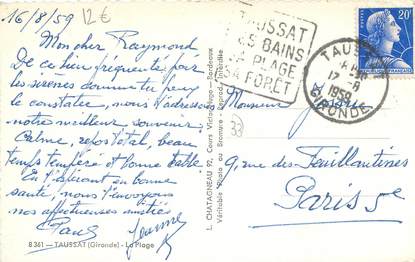 16/8/59 12 €
Mon cher Raymond
De ce lieu fréquenté par
les sirènes comme tu peux
le constater, nous t'adressons
notre meilleur souvenir.
Calme, repos total, beau
temps tempéré et bonne table
en t'espérant en bonne
santé, nous t'envoyons
nos affectueuses amitiés
Paul Jeanne
8 361 - TAUSSAT (Gironde) - La Plage
L. CHATAGNEAU 92, Cours Victor-Hugo - Bordeaux
Véritable Photo au Bromure - Reprod. Interdite
TAUSSAT
LES BAINS
SA PLAGE
SA FORET
TAUSSAT
17 - 8
1959
GIRONDE
20F
Monsieur
33
9, rue des Feuillantines
Paris 5e